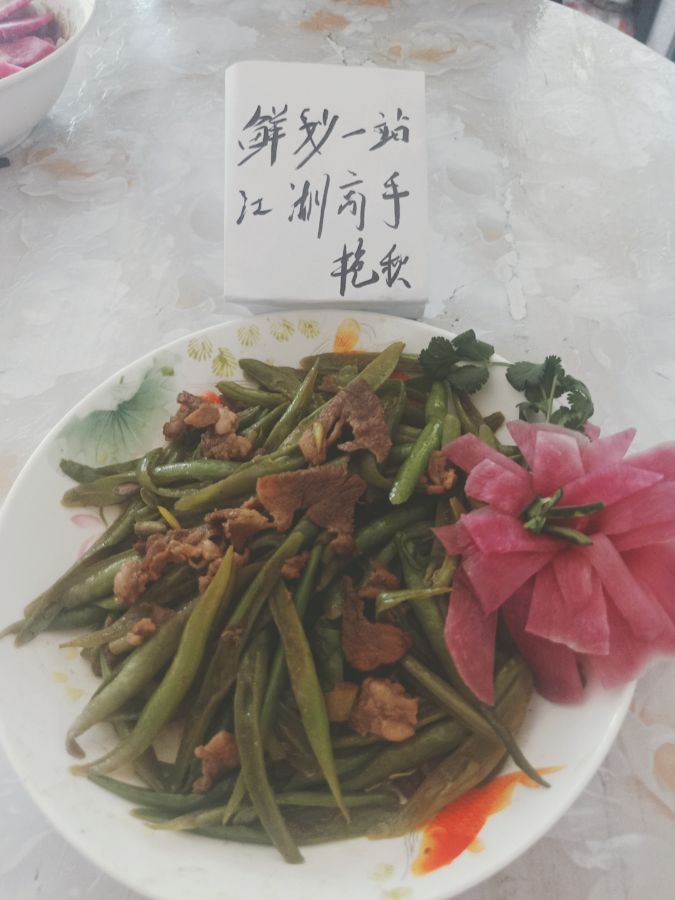 鲜秒一站
江湖高手
艳秋